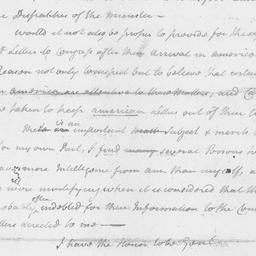 the Dispatches of the Minister —
would it not also be proper to provide for the
of Letters to Congress after their arrival in america
Reason not only to suspect but to believe that certain
in america are attentive to these Matters, and
be taken to keep american Letters out of their
This is an important Subject & merits
for my own Part, I find several Persons
have more Intelligence from am. than myself, a
more mortifying when it is considered that th
probably often indebted for their Information to the
Letters directed to me —
I have the Honor to be Gent